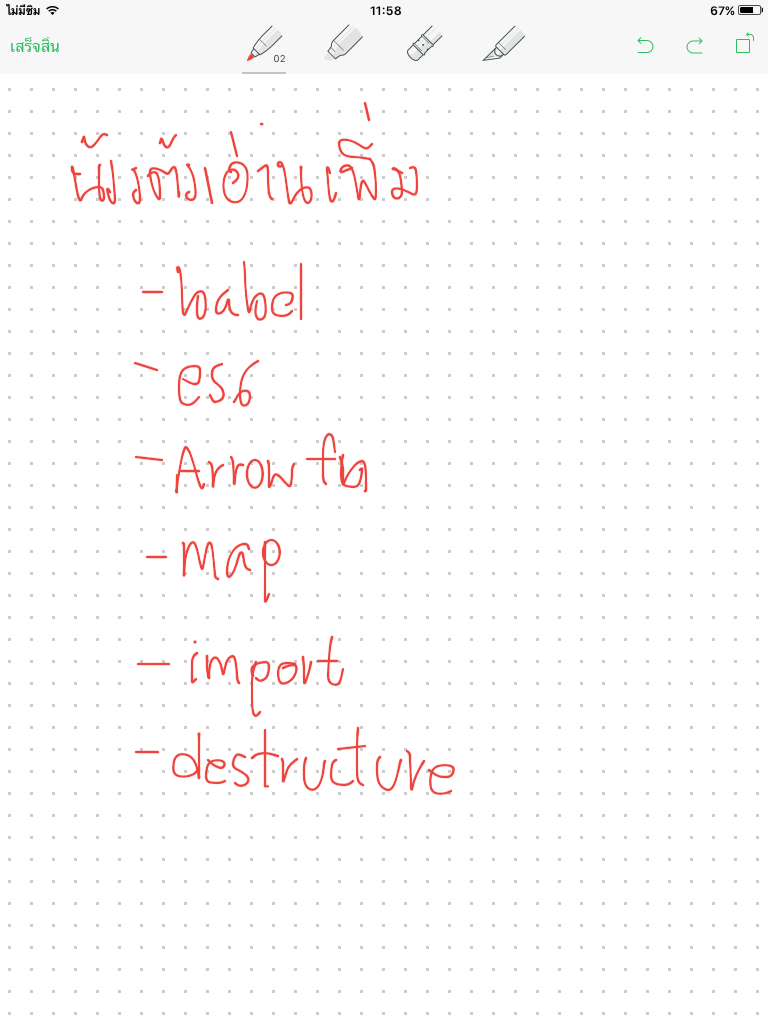 ไม่มีซิม 11:58 67%
เสร็จสิ้น 02
อ่านเพิ่ม
- babel
- es6
- Arrow fn
- map
- import
- destructure